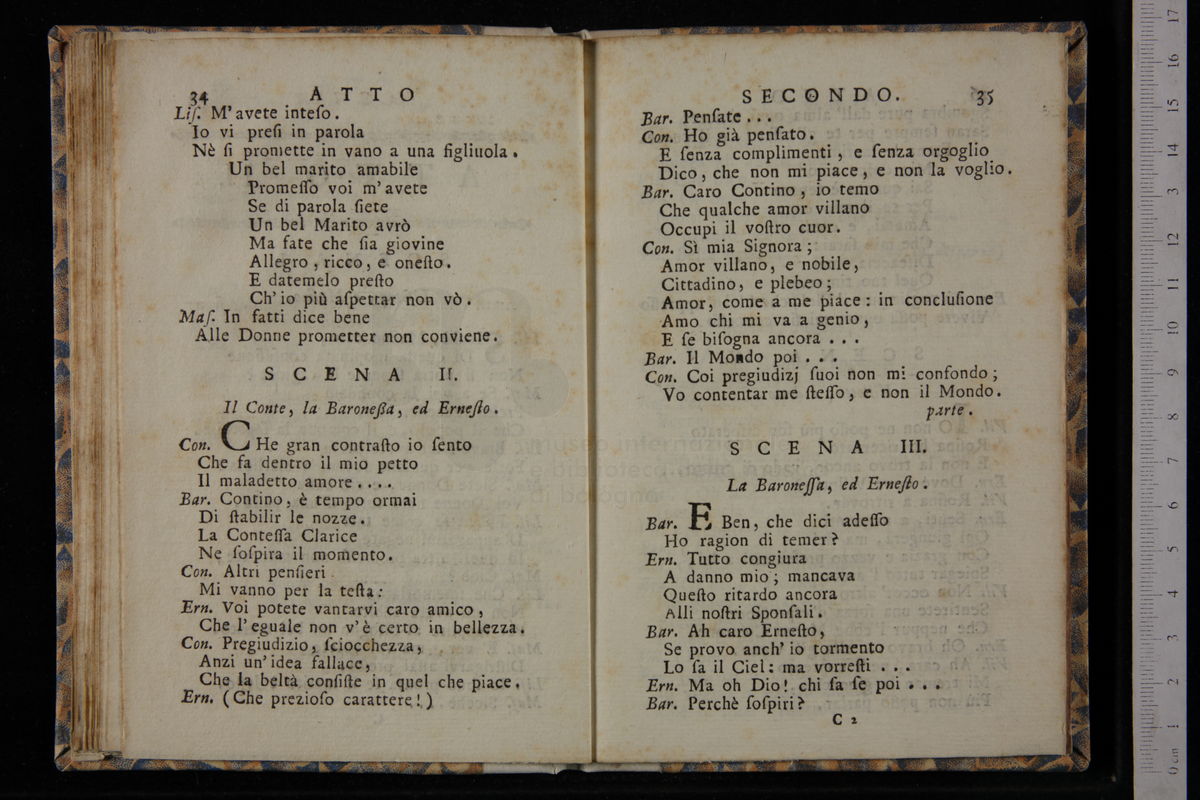 34 ATTO
Liſ. M'avete inteſo.
Io vi preſi in parola
Nè ſi promette in vano a una figliuola.
Un bel marito amabile
Promeſſo voi m'avete
Se di parola ſiete
Un bel Marito avrò
Ma fate che ſia giovine
Allegro, ricco, e oneſto.
E datemelo preſto
Ch'io più aſpettar non vò.
Maſ. In fatti dice bene
Alle Donne prometter non conviene.
SCENA II.
Il Conte, la Baroneßa, ed Erneſto.
Con. CHe gran contraſto io ſento
Che fa dentro il mio petto
Il maladetto amore....
Bar. Contino, è tempo ormai
Di ſtabilir le nozze.
La Conteſſa Clarice
Ne ſoſpira il momento.
Con. Altri penſieri
Mi vanno per la teſta:
Ern. Voi potete vantarvi caro amico,
Che l'eguale non v'è certo in bellezza.
Con. Pregiudizio, ſciocchezza,
Anzi un'idea fallace,
Che la beltà conſiſte in quel che piace.
Ern. (Che prezioſo carattere!)
SECONDO. 35
Bar. Penſate...
Con. Ho già penſato.
E ſenza complimenti, e ſenza orgoglio
Dico, che non mi piace, e non la voglio.
Bar. Caro Contino, io temo
Che qualche amor villano
Occupi il voſtro cuor.
Con. Sì mia Signora;
Amor villano, e nobile,
Cittadino, e plebeo;
Amor, come a me piace: in concluſione
Amo chi mi va a genio,
E ſe biſogna ancora...
Bar. Il Mondo poi...
Con. Coi pregiudizj ſuoi non mi confondo;
Vo contentar me ſteſſo, e non il Mondo.
parte.
SCENA III.
La Baroneſſa, ed Erneſto.
Bar. E Ben, che dici adeſſo
Ho ragion di temer?
Ern. Tutto congiura
A danno mio; mancava
Queſto ritardo ancora
Alli noſtri Sponſali.
Bar. Ah caro Erneſto,
Se provo anch'io tormento
Lo ſa il Ciel: ma vorreſti...
Ern. Ma oh Dio! chi ſa ſe poi...
Bar. Perchè ſoſpiri?
C 2
0 cm 1 2 3 4 5 6 7 8 9 10 11 12 13 14 15 16 17